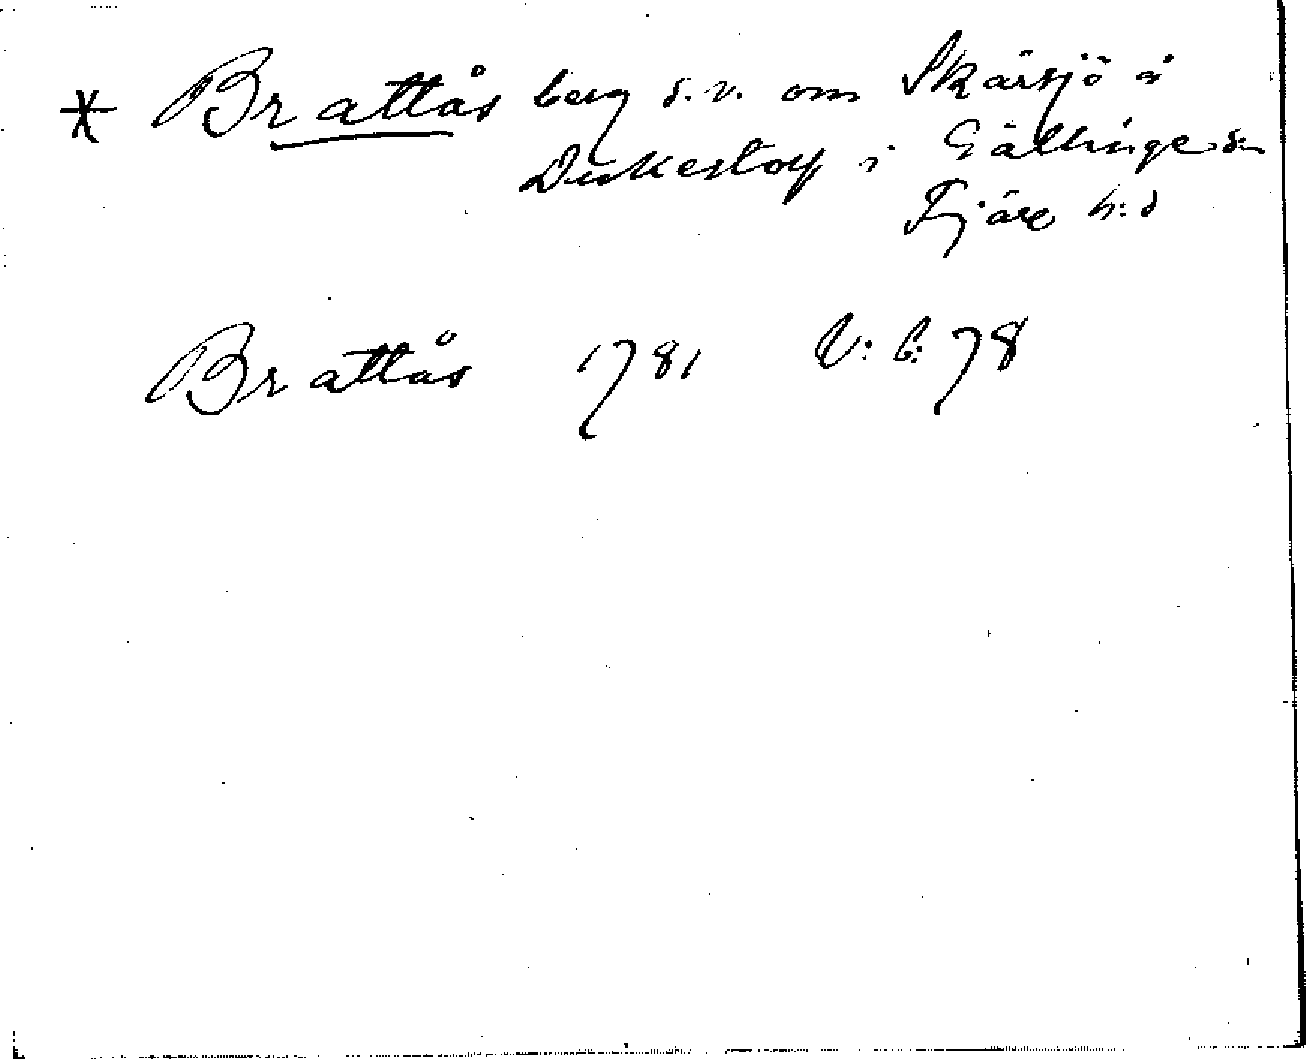 * Brattås berg s.v. om Skärsjö i
Duvkestorp i Gällinge sn
Fjäre h:d
Brattås 1781 V: b: 78